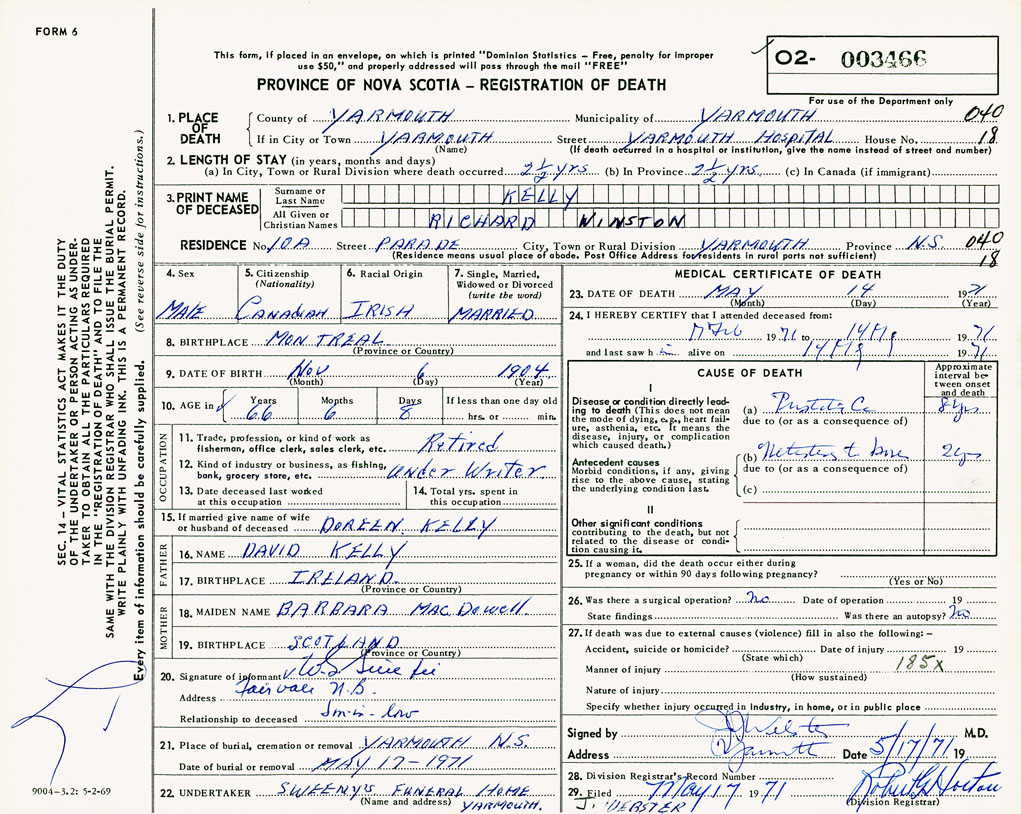 FORM 6
This form, if placed in an envelope, on which is printed "Dominion Statistics – Free, penalty for Improper
use $50," and properly addressed will pass through the mail "FREE"
O2- 003466
PROVINCE OF NOVA SCOTIA – REGISTRATION OF DEATH
For use of the Department only
1. PLACE OF DEATH County of YARMOUTH Municipality of YARMOUTH 040
If in City or Town YARMOUTH Street YARMOUTH HOSPITAL House No. 18
(Name) (If death occurred in a hospital or institution, give the name instead of street and number)
2. LENGTH OF STAY (in years, months and days)
(a) In City, Town or Rural Division where death occurred 2 1/2 yrs (b) In Province 2 1/2 yrs. (c) In Canada (if immigrant)
3. PRINT NAME OF DECEASED Surname or Last Name KELLY
All Given or Christian Names RICHARD WINSTON
RESIDENCE No. 10A Street PARADE City, Town or Rural Division YARMOUTH Province N.S. 040
(Residence means usual place of abode. Post Office Address for residents in rural parts not sufficient) 18
4. Sex MALE
5. Citizenship (Nationality) CANADIAN
6. Racial Origin IRISH
7. Single, Married, Widowed or Divorced (write the word) MARRIED
8. BIRTHPLACE MONTREAL
(Province or Country)
9. DATE OF BIRTH Nov 6 1904
(Month) (Day) (Year)
10. AGE in Years 66 Months 6 Days 8 If less than one day old
hrs. or min.
OCCUPATION
11. Trade, profession, or kind of work as fisherman, office clerk, sales clerk, etc. Retired
12. Kind of industry or business, as fishing, bank, grocery store, etc. Under Writer.
13. Date deceased last worked at this occupation
14. Total yrs. spent in this occupation
15. If married give name of wife or husband of deceased DOREEN KELLY
FATHER
16. NAME DAVID KELLY
17. BIRTHPLACE IRELAND.
(Province or Country)
MOTHER
18. MAIDEN NAME BARBARA MAC DOWELL
19. BIRTHPLACE SCOTLAND
(Province or Country)
20. Signature of informant
Address Fairvale N.B.
Relationship to deceased Son-in-law
21. Place of burial, cremation or removal YARMOUTH N.S.
Date of burial or removal MAY 17-1971
22. UNDERTAKER SWEENYS FUNERAL HOME
(Name and address) YARMOUTH.
MEDICAL CERTIFICATE OF DEATH
23. DATE OF DEATH MAY 14 1971
(Month) (Day) (Year)
24. I HEREBY CERTIFY that I attended deceased from:
17 Feb 1971 to 14 My 1971
and last saw him alive on 14 My 1971
CAUSE OF DEATH
Approximate interval between onset and death
I
Disease or condition directly leading to death (This does not mean the mode of dying, e.g., heart failure, asthenia, etc. It means the disease, injury, or complication which caused death.)
(a) Prostatic Ca 8 yrs
due to (or as a consequence of)
Antecedent causes
Morbid conditions, if any, giving rise to the above cause, stating the underlying condition last.
(b) Metastasis to bone 2 yrs
due to (or as a consequence of)
(c)
II
Other significant conditions
contributing to the death, but not related to the disease or condition causing it.
25. If a woman, did the death occur either during pregnancy or within 90 days following pregnancy?
(Yes or No)
26. Was there a surgical operation? No Date of operation 19
State findings Was there an autopsy? No
27. If death was due to external causes (violence) fill in also the following: –
Accident, suicide or homicide? Date of injury 19
(State which)
Manner of injury 185X
(How sustained)
Nature of injury
Specify whether injury occurred in industry, in home, or in public place
Signed by Webster M.D.
Address Yarmouth Date 5/17/71 19
28. Division Registrar's Record Number
29. Filed May 17 1971 Robert Horton
J. WEBSTER (Division Registrar)
SEC. 14 – VITAL STATISTICS ACT MAKES IT THE DUTY
OF THE UNDERTAKER OR PERSON ACTING AS UNDER-
TAKER TO OBTAIN ALL THE PARTICULARS REQUIRED
IN THE "REGISTRATION OF DEATH" AND TO FILE THE
SAME WITH THE DIVISION REGISTRAR WHO SHALL ISSUE THE BURIAL PERMIT.
WRITE PLAINLY WITH UNFADING INK. THIS IS A PERMANENT RECORD.
Every item of information should be carefully supplied. (See reverse side for instructions.)
9004-3.2: 5-2-69